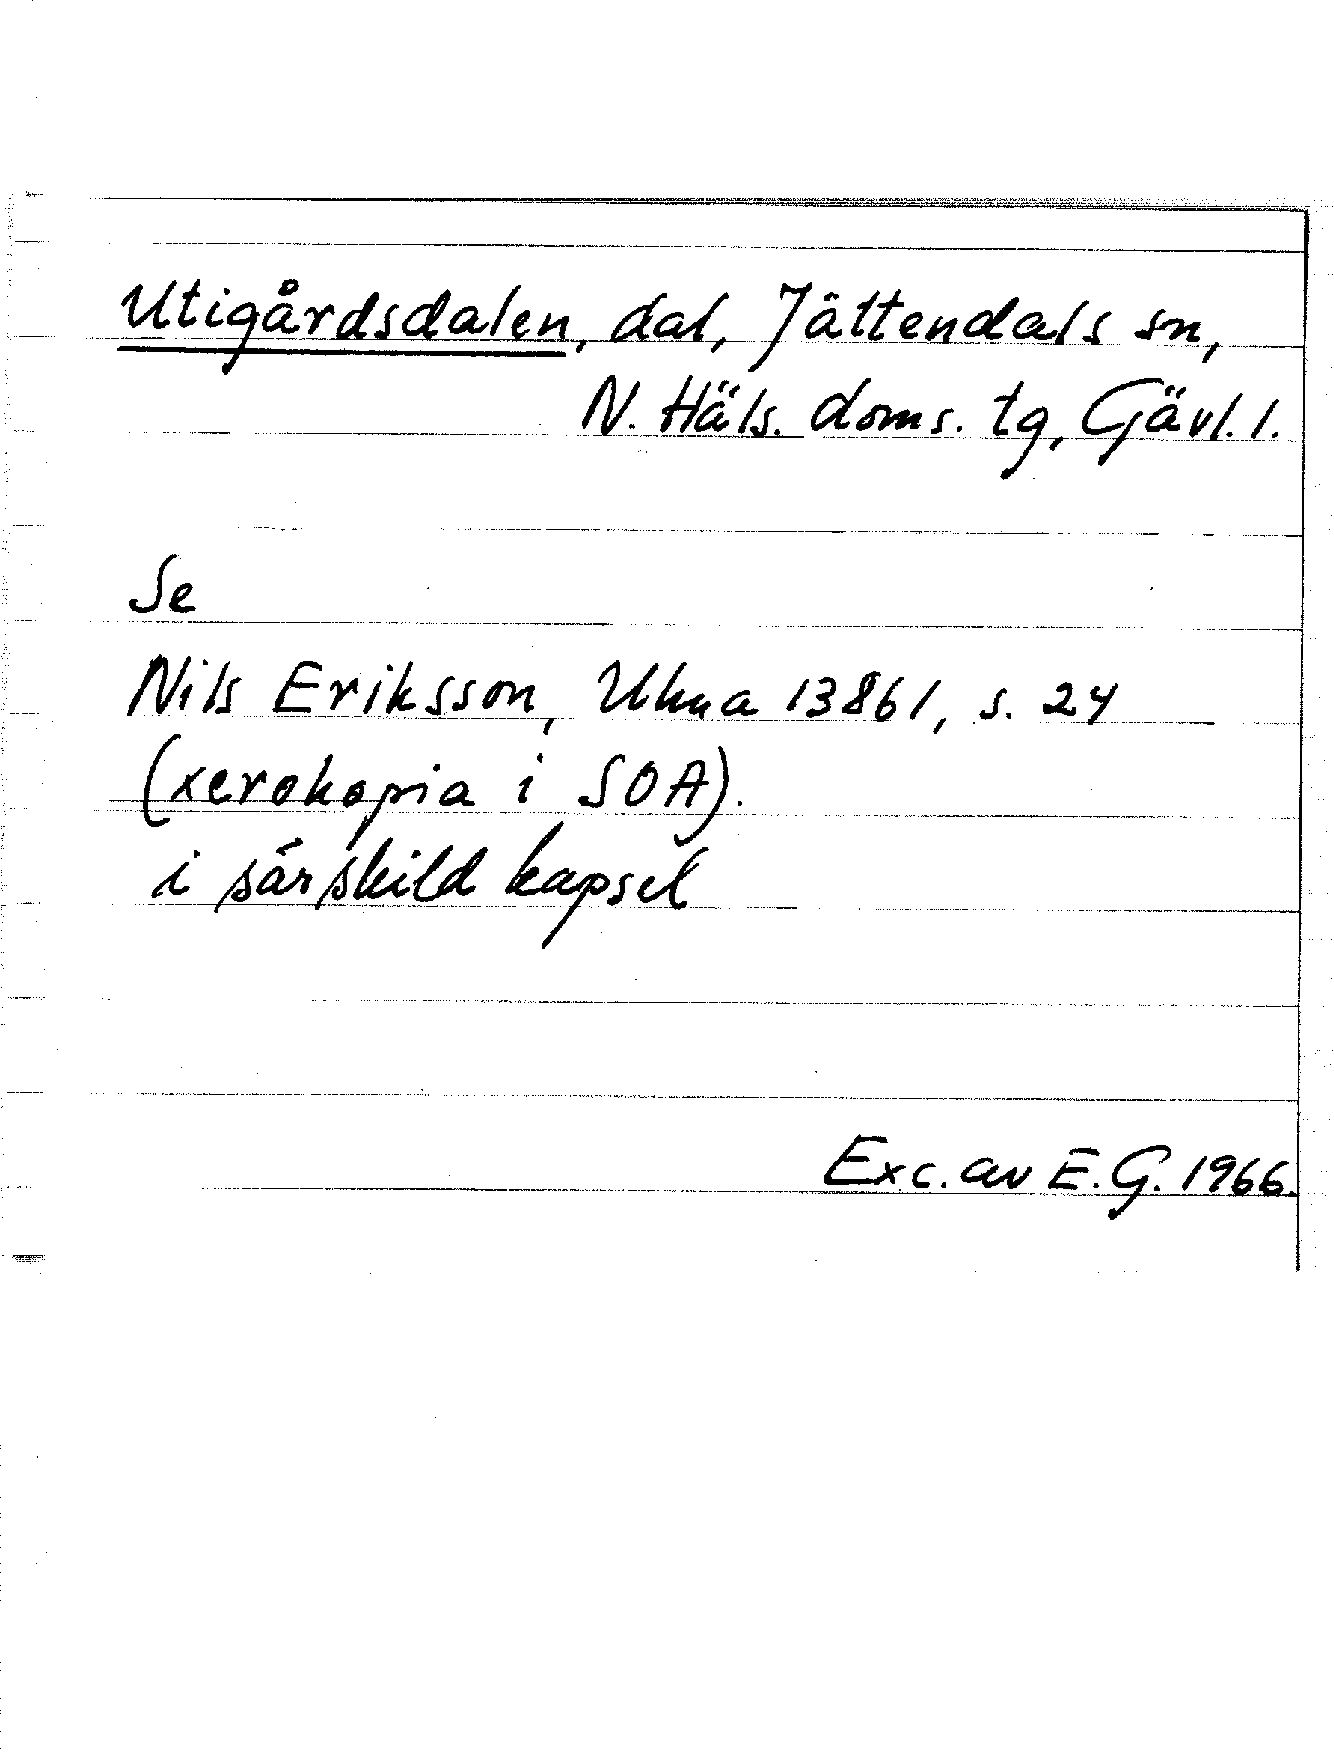 Utigårdsdalen, dal, Jättendals sn,
N. Häls. doms. tg, Gävl. l.
Se
Nils Eriksson, Ulma 13861, s. 24
(xerokopia i SOA).
i särskild kapsel
Exc. av E. G. 1966.